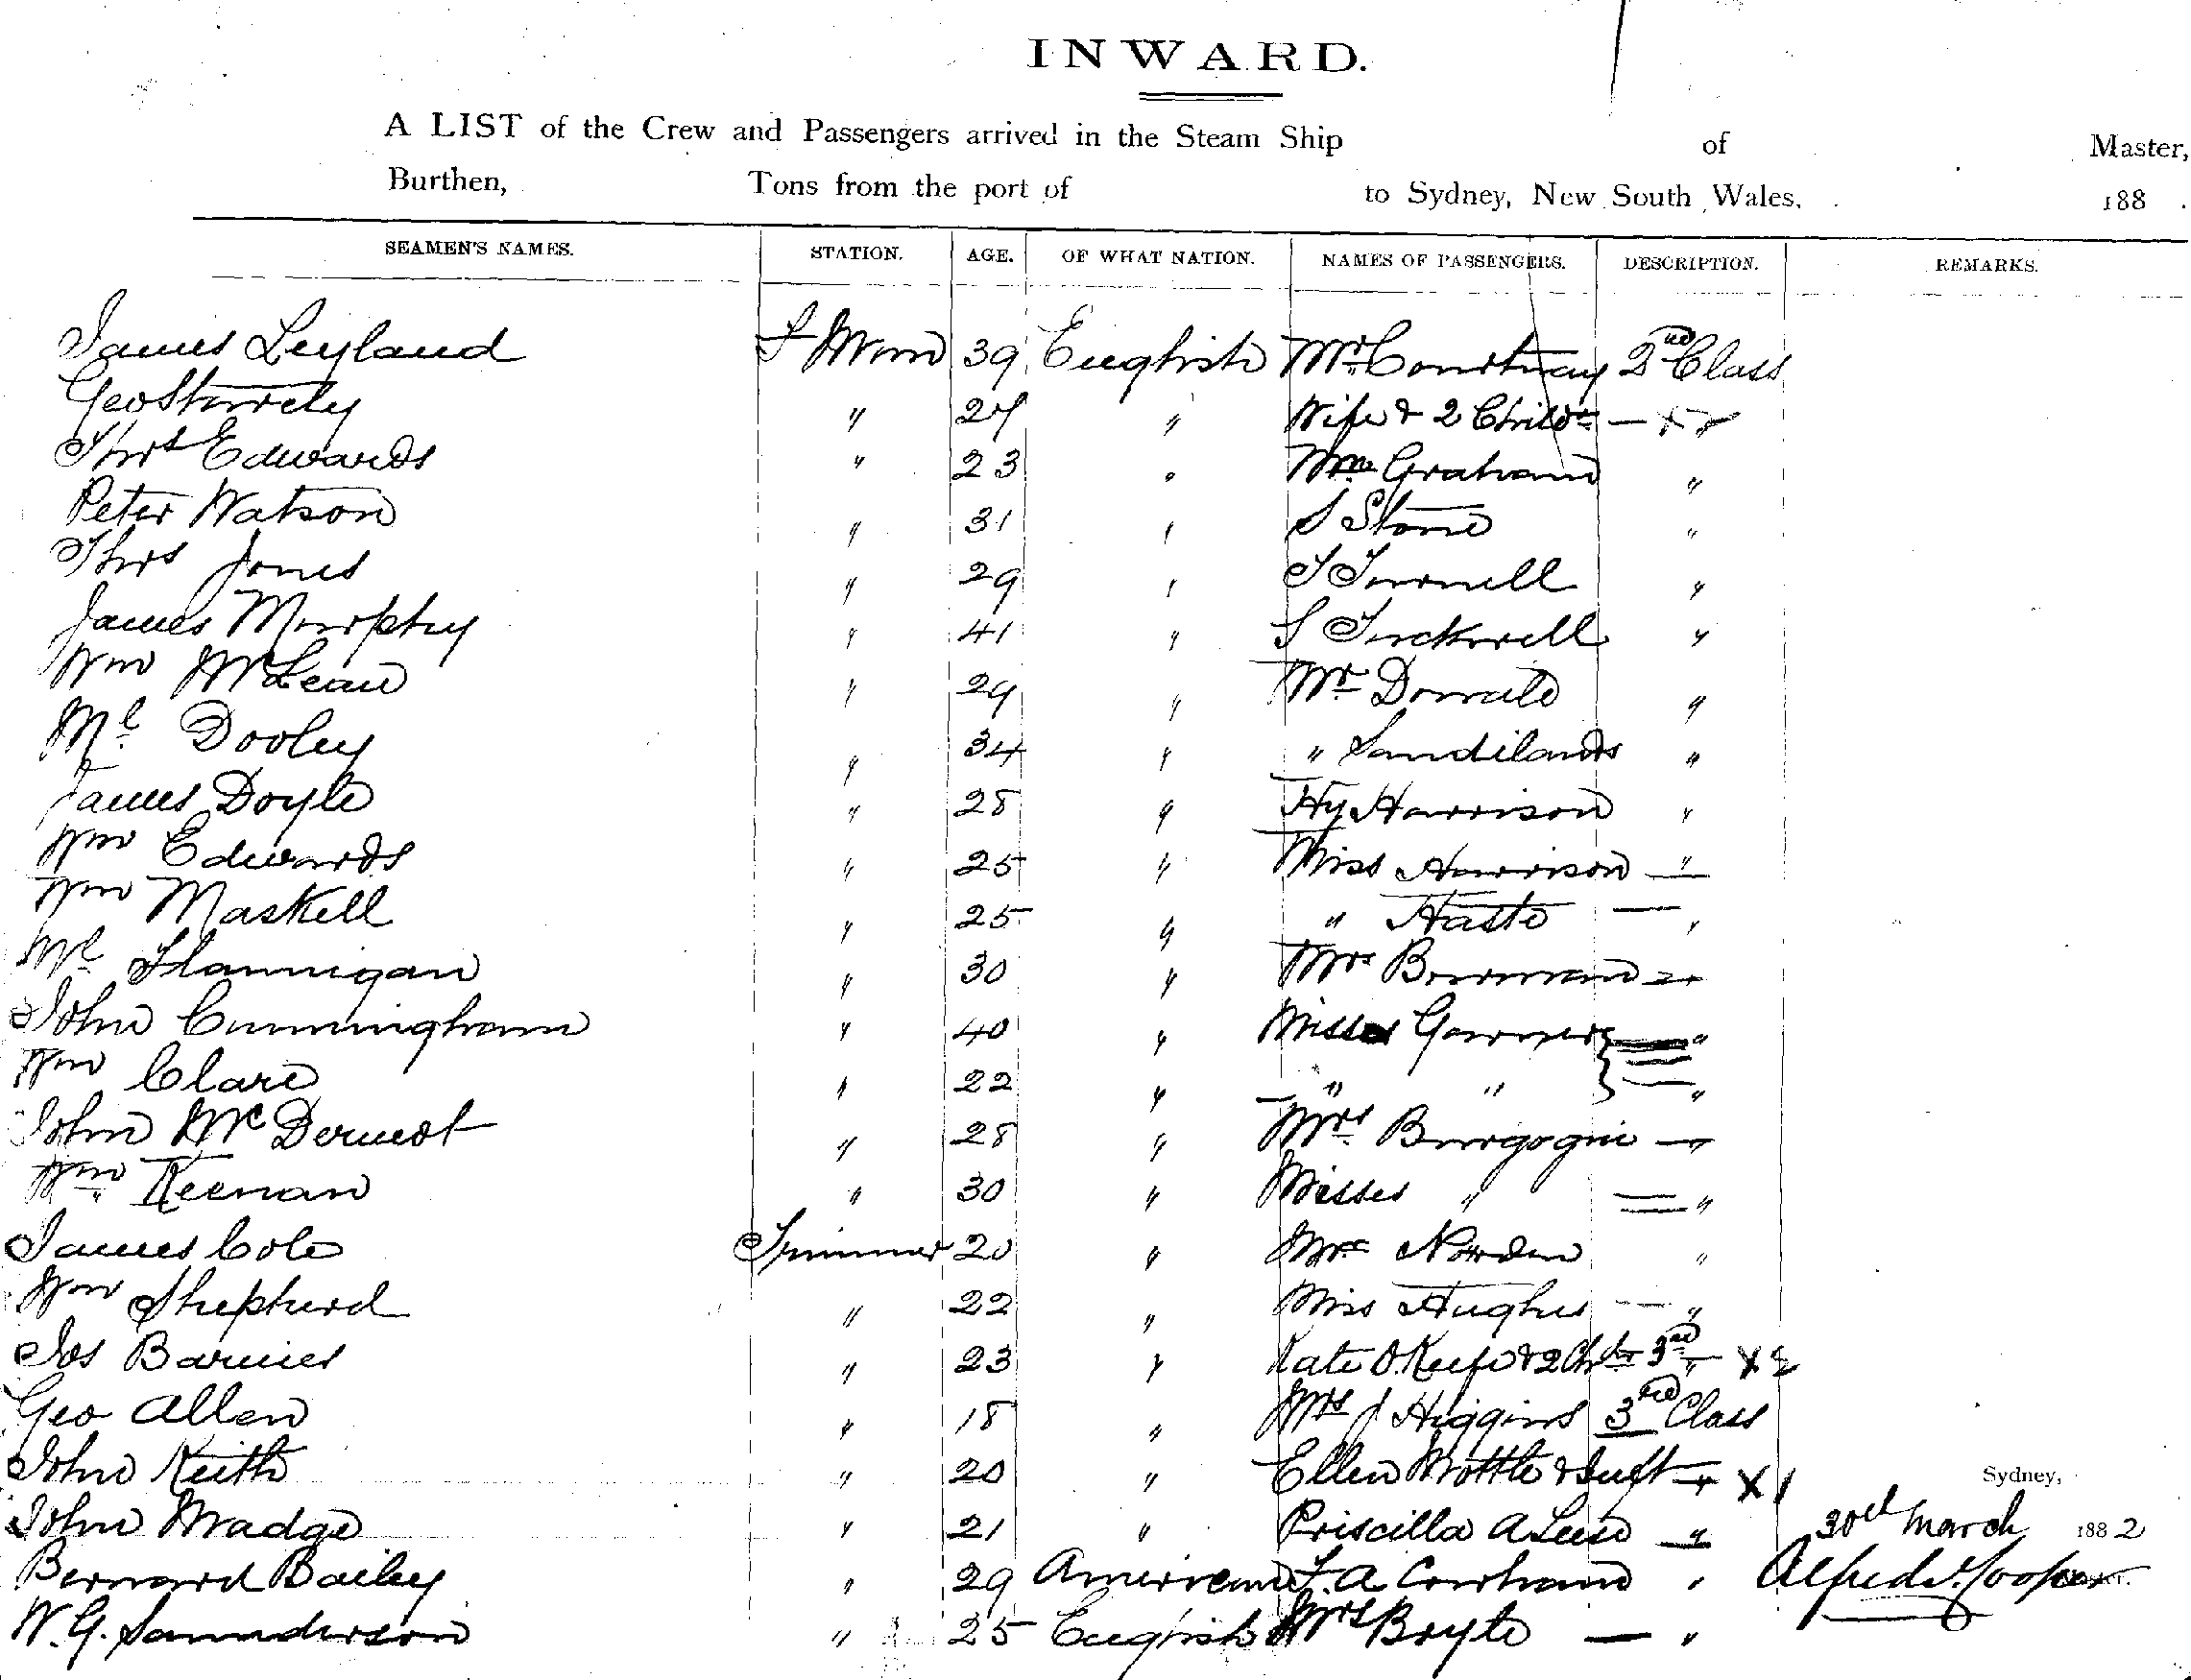 INWARD.
A LIST of the Crew and Passengers arrived in the Steam Ship of Master,
Burthen, Tons from the port of to Sydney, New South Wales, 188 .
SEAMEN'S NAMES. STATION. AGE. OF WHAT NATION. NAMES OF PASSENGERS. DESCRIPTION. REMARKS.
James Leyland 39 English Mr Courtnay 2nd Class
Geo " 27 " Wife & 2 Childn —
Thos Edwards " 23 " Wm Graham "
Peter Watson " 31 " S Stone "
Thos Jones " 29 " "
James Murphy " 41 " S Tuckwell "
Wm McLean " 29 " Mr "
Ml Dooley " 34 " " Sandilands "
James Doyle " 28 " Hy Harrison "
Wm Edwards " 25 " Miss Harrison — "
Wm Maskell " 25 " " Haste — "
Ml Flannigan " 30 " Mrs Bowman — "
John Cunningham " 40 " Misses "
Wm Clare " 22 " " " — "
John McDermot " 28 " Mrs Bourgogne — "
Wm Keenan " 30 " Misses " = "
James Cole Trimmer 20 " Mrs "
Wm Shepherd " 22 " Miss Hughes — "
Jos Barnes " 23 " Kate O.Keefe & 2 Chdn 3rd " X 2
Geo Allen " 18 " Mrs J Higgins 3rd Class
John Keith " 20 " Ellen & Inft " X 1 Sydney,
John Madge " 21 " Priscilla A " 30th March 1882
Bernard Bailey " 29 American " Alfred Cooper Master.
W. G. Saunderson " 25 English Mrs Boyle — "